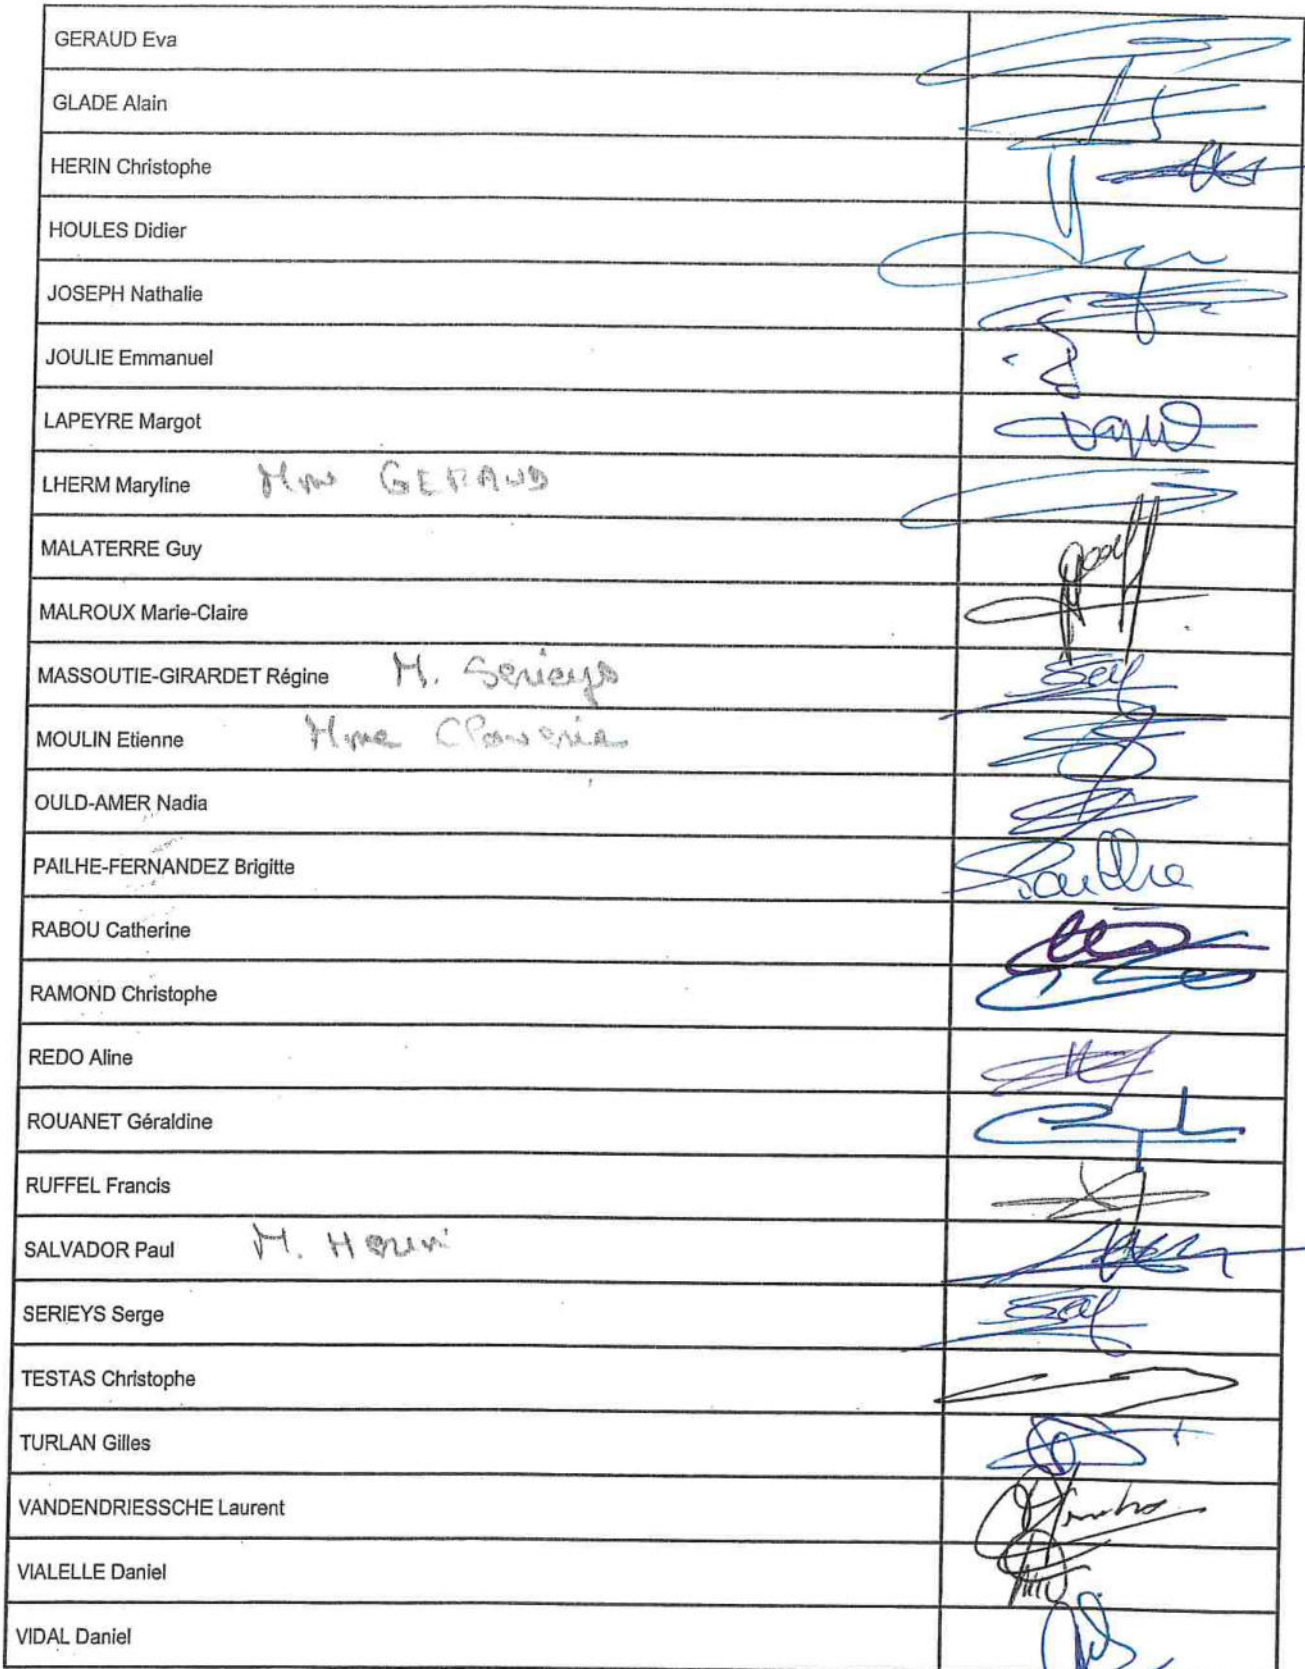 GERAUD Eva
GLADE Alain
HERIN Christophe
HOULES Didier
JOSEPH Nathalie
JOULIE Emmanuel
LAPEYRE Margot
LHERM Maryline Mme GERAUD
MALATERRE Guy
MALROUX Marie-Claire
MASSOUTIE-GIRARDET Régine M. Serieys
MOULIN Etienne Mme Claverie
OULD-AMER Nadia
PAILHE-FERNANDEZ Brigitte
RABOU Catherine
RAMOND Christophe
REDO Aline
ROUANET Géraldine
RUFFEL Francis
SALVADOR Paul M. Herin
SERIEYS Serge
TESTAS Christophe
TURLAN Gilles
VANDENDRIESSCHE Laurent
VIALELLE Daniel
VIDAL Daniel